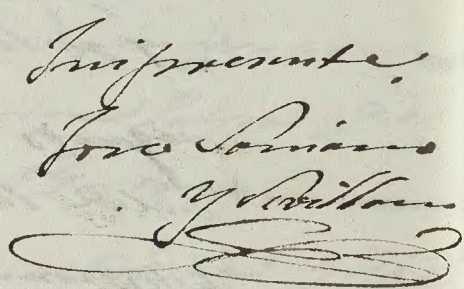 Fui presente.
Jose Soriano
y Sevillano